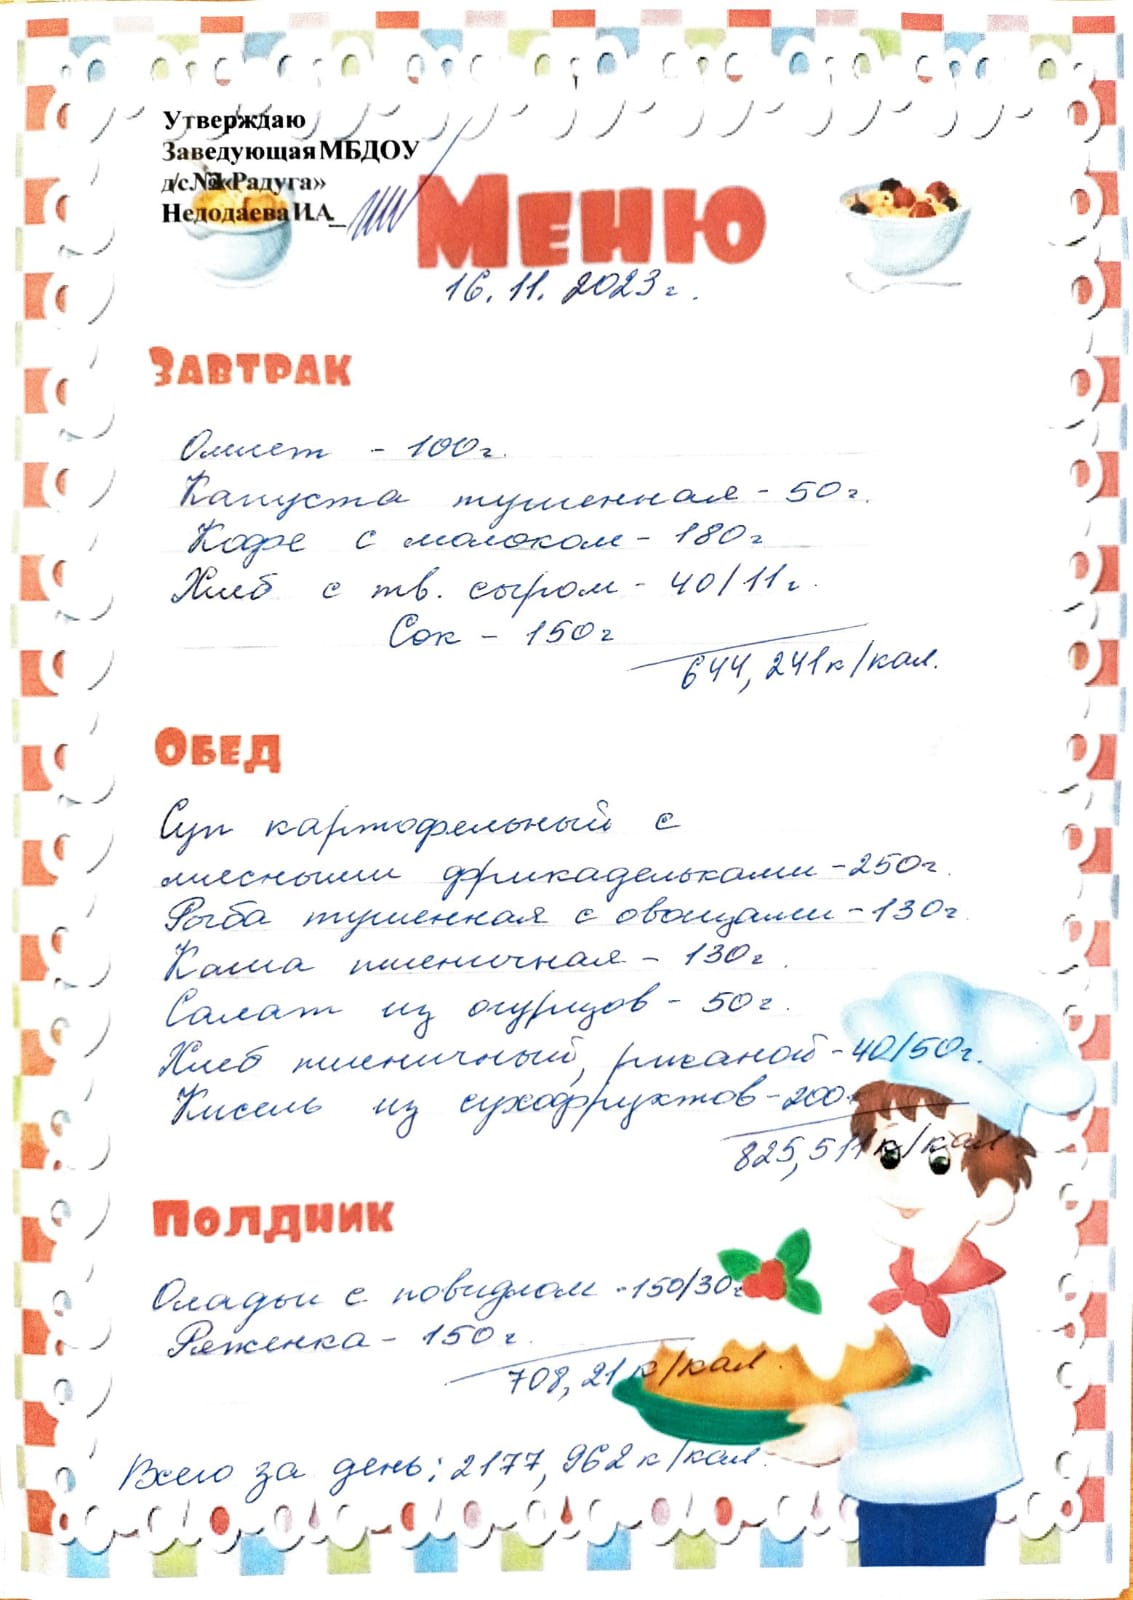 Утверждаю
Заведующая МБДОУ
д/с «Радуга»
Недодаева И.А_
Меню
16.11.2023г.
Завтрак
Омлет - 100г.
Капуста тушенная - 50г.
Кофе с молоком - 180г
Хлеб с тв. сыром - 40/11г.
Сок - 150г
644,241к/кал.
Обед
Суп картофельный с
мясными фрикадельками - 250г.
Рыба тушенная с овощами - 130г.
Каша пшеничная - 130г.
Салат из огурцов - 50г.
Хлеб пшеничный, ржаной - 40/50г.
Кисель из сухофруктов - 200
825,511к/кал
Полдник
Оладьи с повидлом - 150/30г
Ряженка - 150г.
708,21к/кал.
Всего за день: 2177,962к/кал.